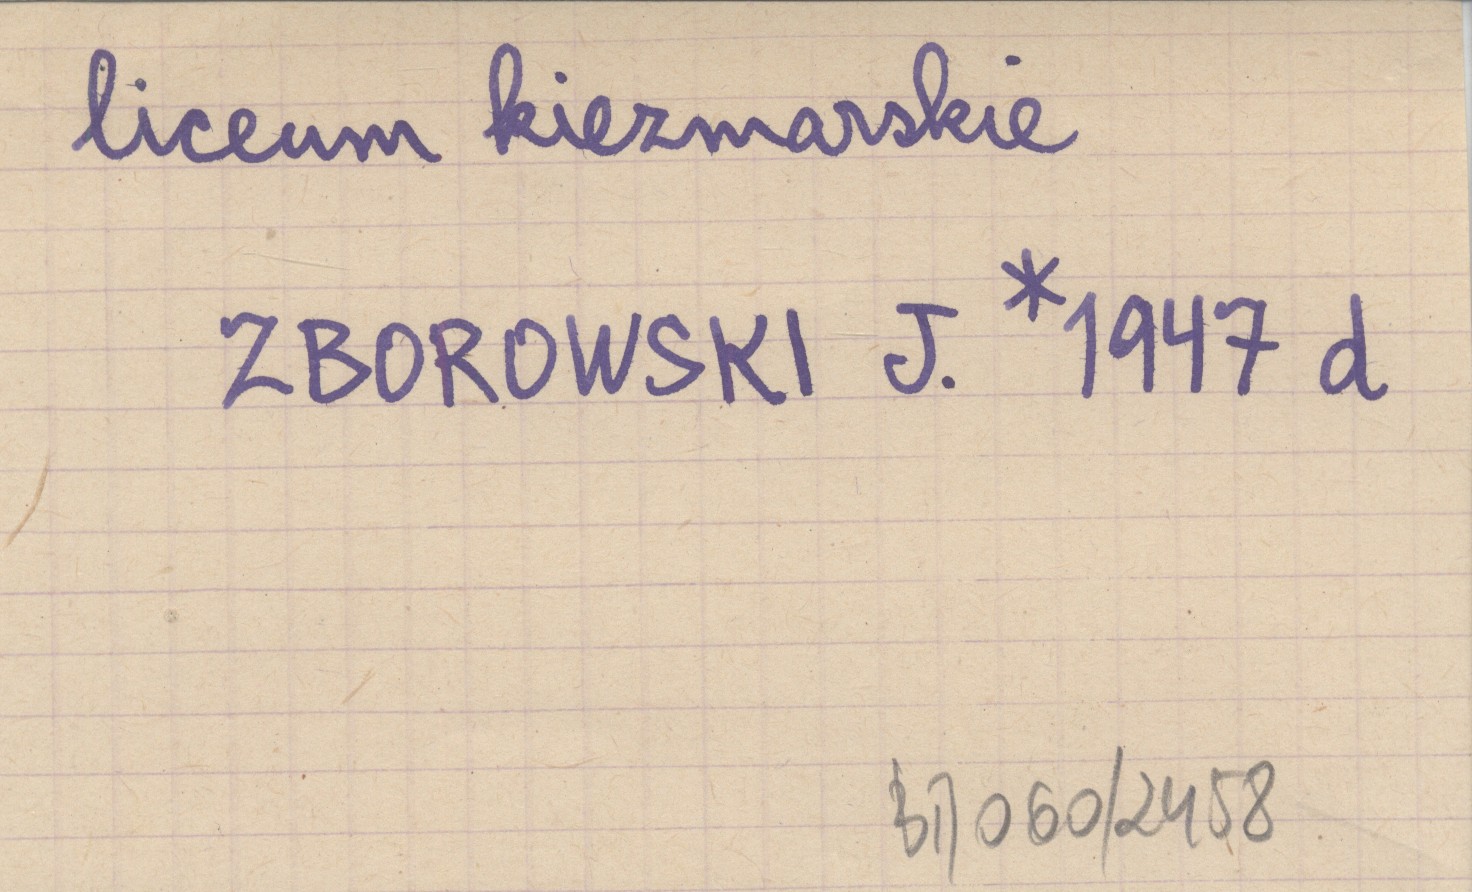 liceum kiezmarskie
ZBOROWSKI J. *1947 d
060/2458